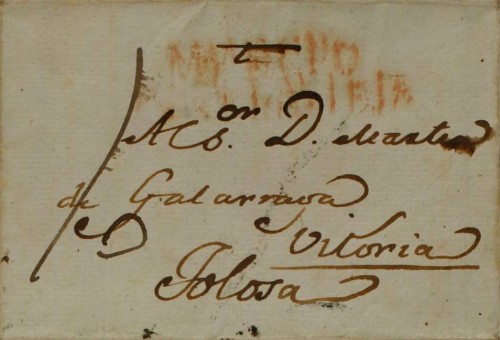 A Sor. D. Martin
de Galarraga
Vitoria
Tolosa